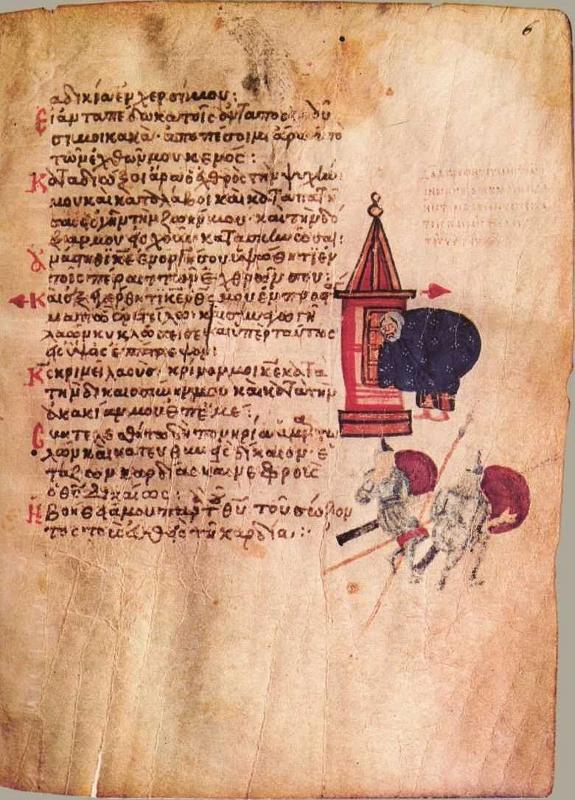 6
ἀδικία ἐν χερσίν μου:
Εἰ ἀνταπέδωκα τοῖς ἀνταποδιδοῦ
σί μοι κακά· ἀποπέσοιμι ἄρα ἀπὸ
τῶν ἐχθρῶν μου κενός:
Καταδιώξοι ἄρα ὁ ἐχθρὸς τὴν ψυχήν
μου καὶ καταλάβοι καὶ καταπατή
σαι εἰς γῆν τὴν ζωήν μου· καὶ τὴν δό
ξαν μου εἰς χοῦν κατασκηνώσαι:
Ἀνάστηθι κε ἐν ὀργῇ σου ὑψώθητι ἐν
τοῖς πέρασι τῶν ἐχθρῶν σου:
Καὶ ἐξεγέρθητι κε ὁ θς μου ἐν προσ
τάγματι ᾧ ἐνετείλω καὶ συναγωγὴ
λαῶν κυκλώσει σε καὶ ὑπὲρ ταύτης
εἰς ὕψος ἐπίστρεψον:
Κς κρινεῖ λαούς· κρῖνόν μοι κε κατὰ
τὴν δικαιοσύνην μου καὶ κατὰ τὴν
ἀκακίαν μου ἐπ' ἐμέ:
Συντελεσθήτω δὴ πονηρία ἁμαρτω
λῶν καὶ κατευθυνεῖς δίκαιον· ἐ
τάζων καρδίας καὶ νεφροὺς
ὁ θς δικαίως:
Ἡ βοήθειά μου παρὰ τοῦ θυ τοῦ σώζον
τος τοὺς εὐθεῖς τῇ καρδίᾳ: